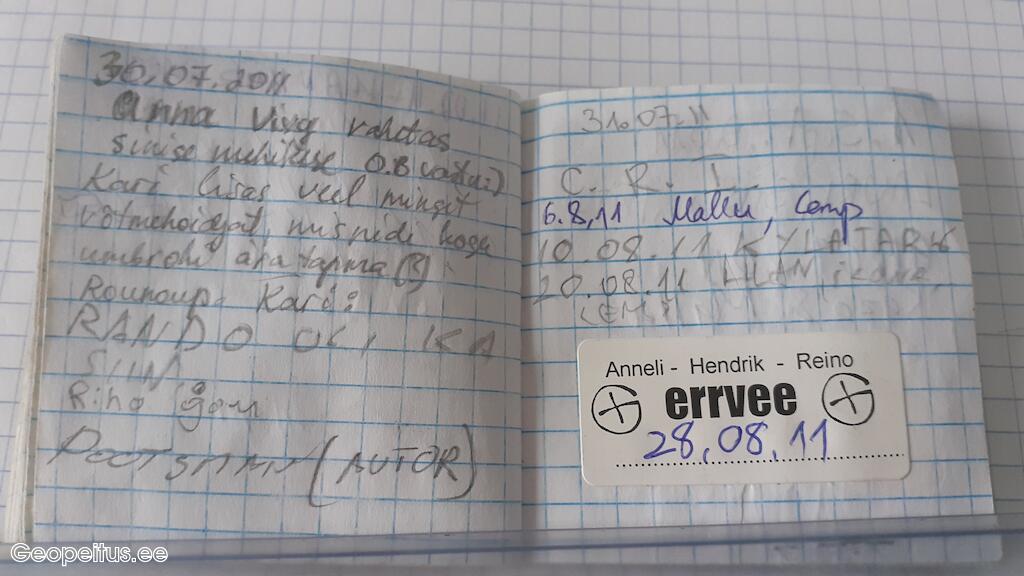 30.07.2011
Anna Viva vahetas
sinise nukikese O.B vastu:)
Kari lisas veel mingit
võtmehoidjat, mis pidi kogu
umbrohu ära tapma (?)
Rounoup. Kari:
RANDO OLI KA
SIIN
Riho
POOTSMAN (AUTOR)
31.07.11
C. R. T.
6.8.11 Mallu, Cemp
10.08.11 KYLATARK
20.08.11
Anneli - Hendrik - Reino
errvee
28.08.11
Geopeitus.ee